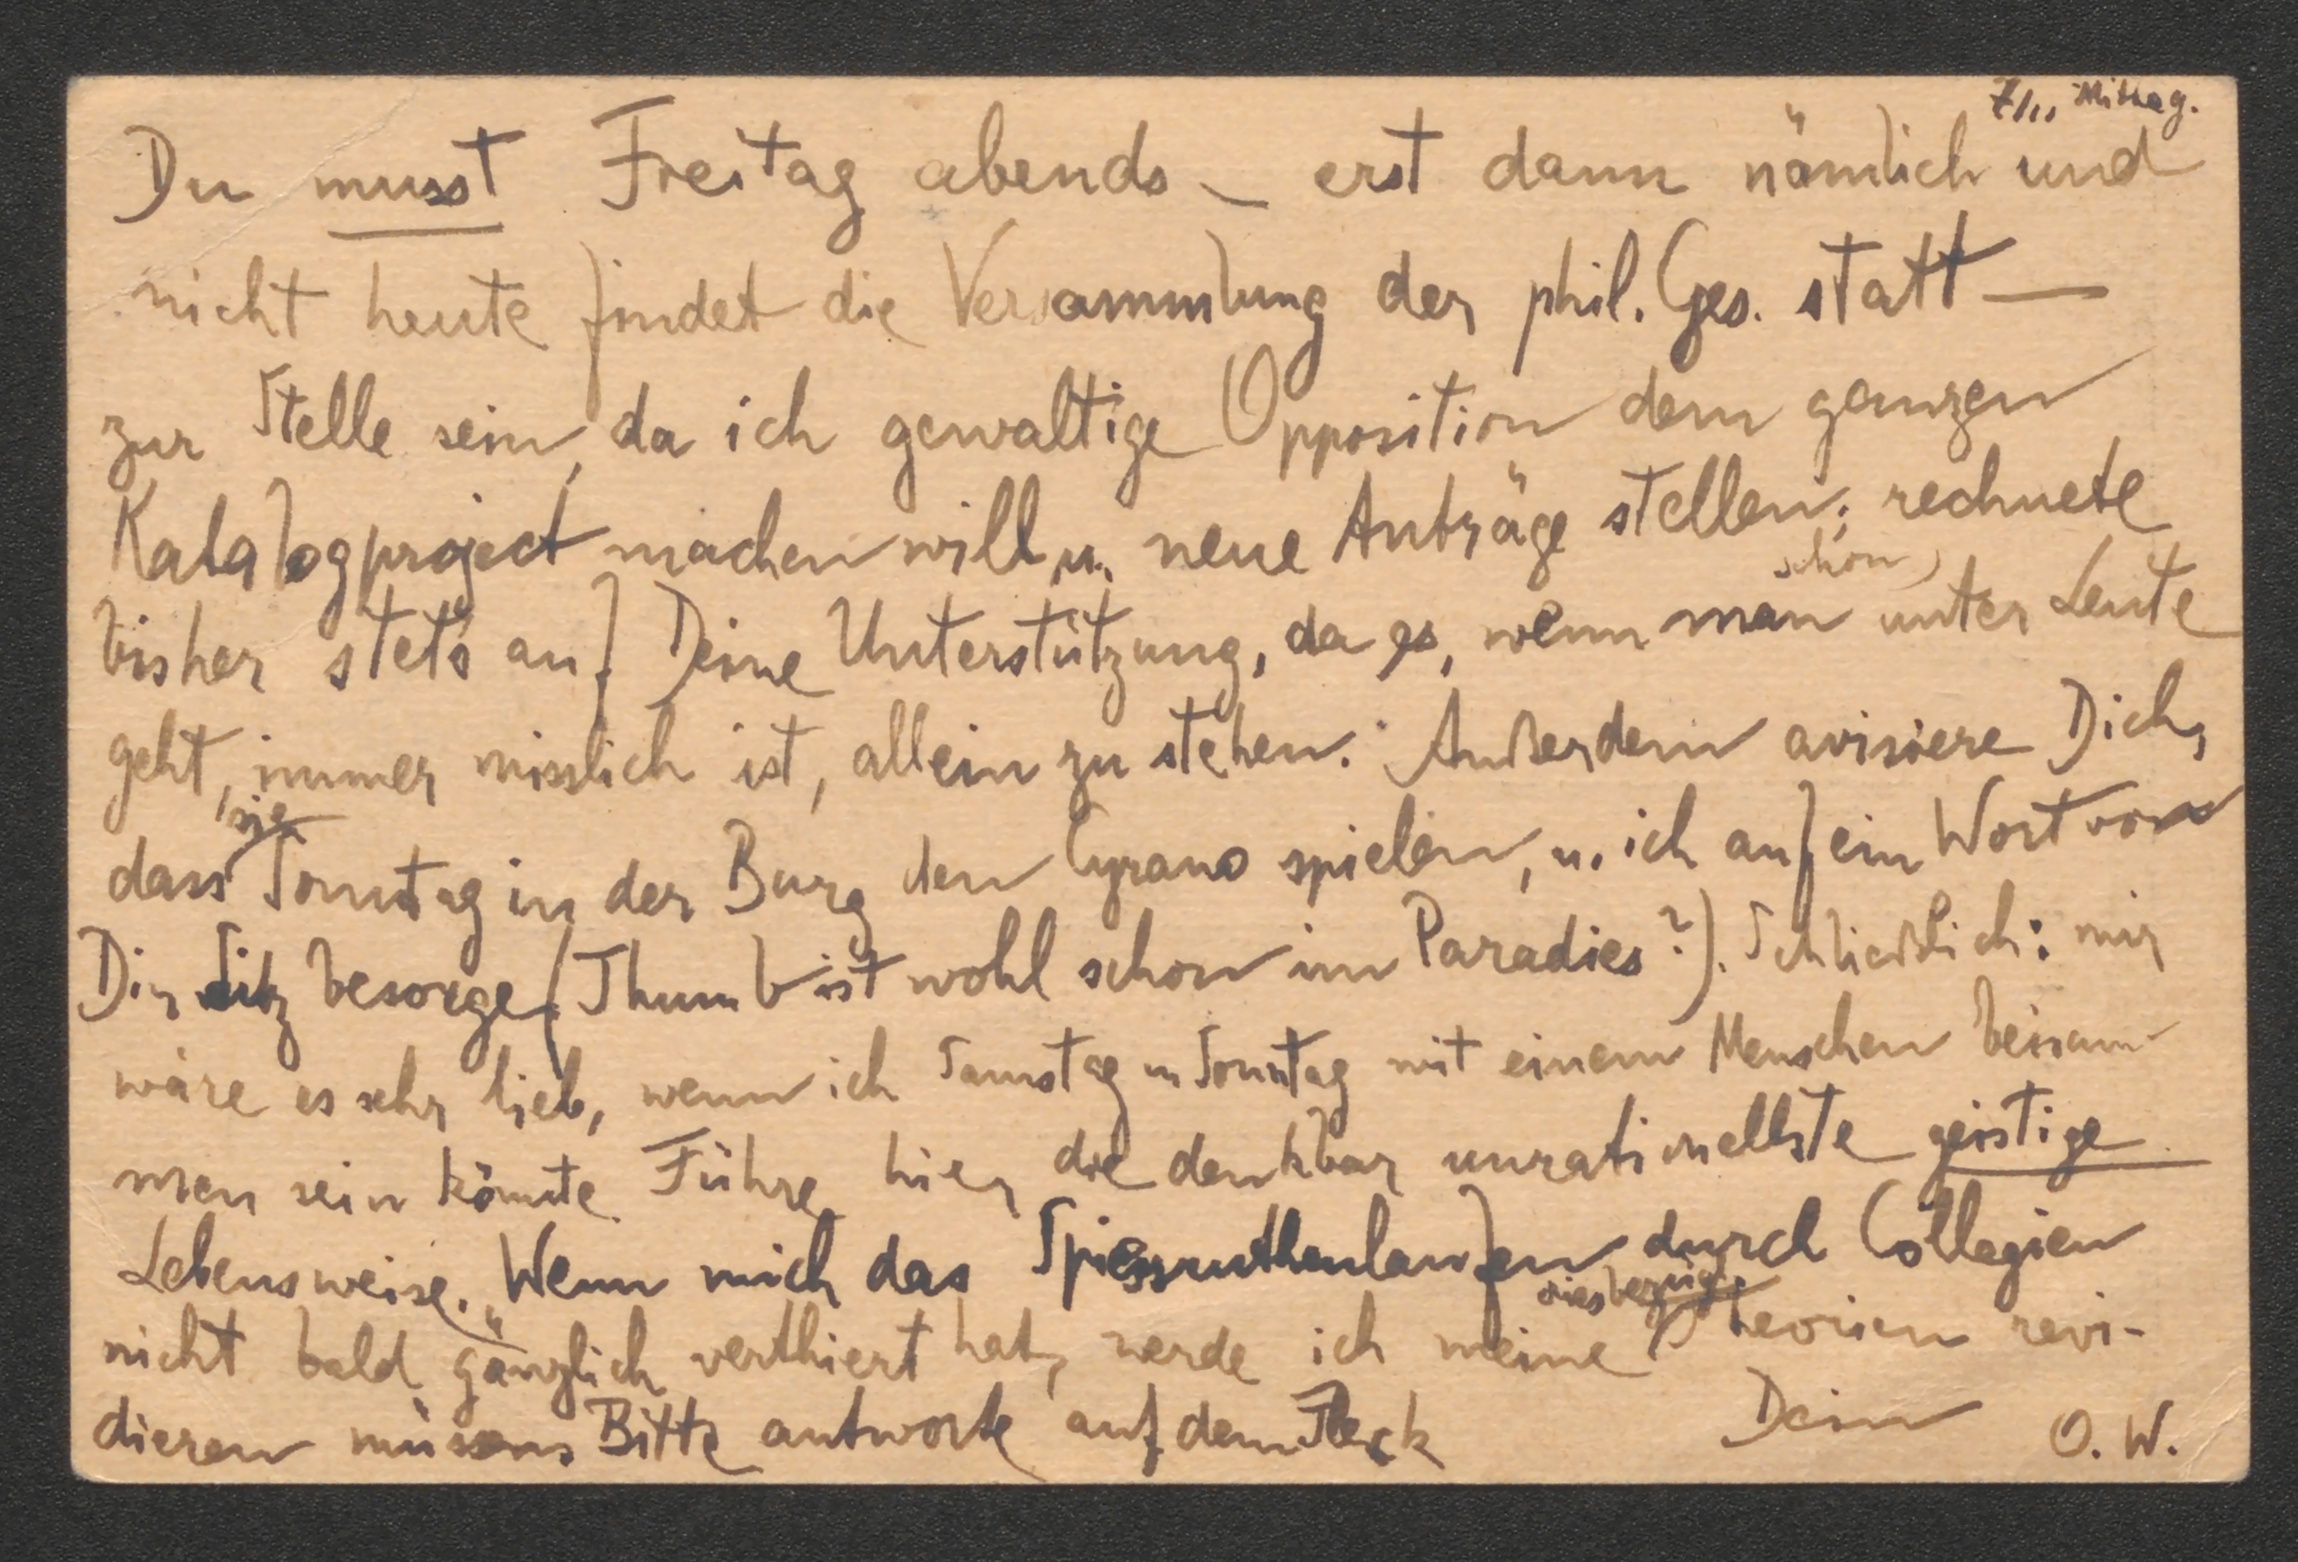 7/11 Mittag.
Du musst Freitag abends – erst dann nämlich und
nicht heute findet die Versammlung der phil. Ges. statt –
zur Stelle sein, da ich gewaltige Opposition dem ganzen
Katalogproject machen will u. neue Anträge stellen; rechnete
schon
bisher stets auf Deine Unterstützung, da es, wenn man unter Leute
geht, immer misslich ist, allein zu stehen. Außerdem avisiere Dich,
sie
dass Sonntag in der Burg den Cyrano spielen, u. ich auf ein Wort von
Dir Sitz besorge (Thumb ist wohl schon im Paradies?). Schließlich: mir
wäre es sehr lieb, wenn ich Samstag u Sonntag mit einem Menschen beisam
men sein könnte. Führe hier die denkbar unrationellste geistige
Lebensweise. Wenn mich das Spiessruthenlaufen durch Collegien
diesbezügl.
nicht bald gänzlich verthiert hat, werde ich meine Theorien revi-
dieren müssen. Bitte antworte auf dem Fleck Dein O. W.